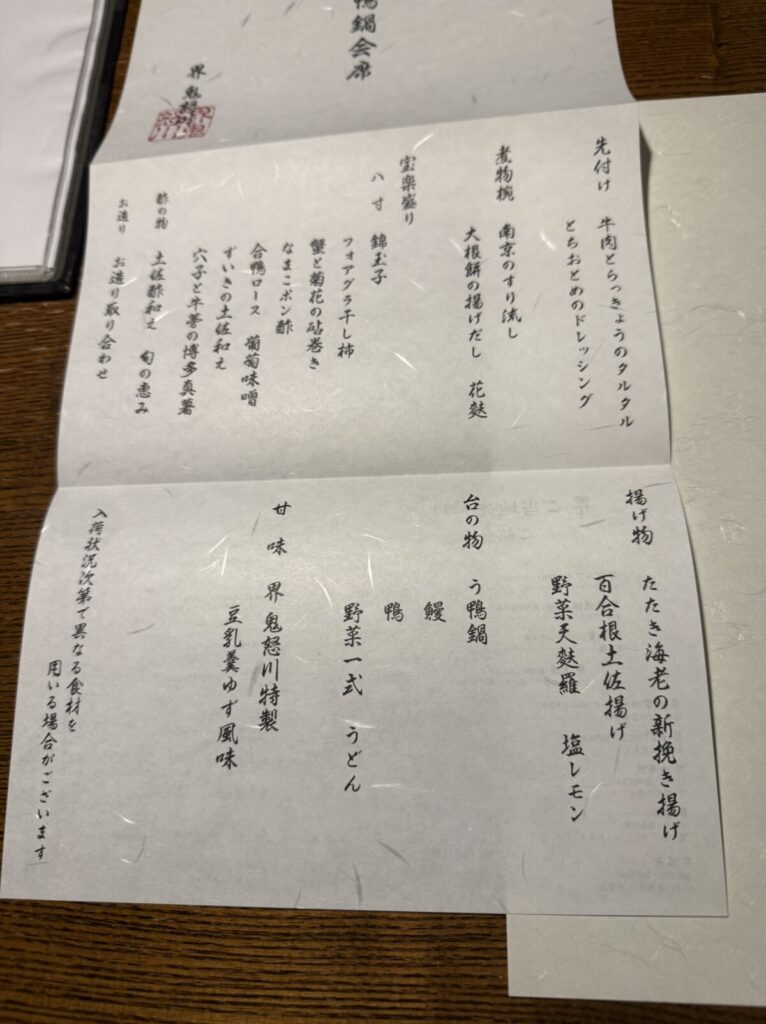 鴨鍋会席
界 鬼怒川
先付け 牛肉とらっきょうのタルタル
とちおとめのドレッシング
煮物椀 南京のすり流し
大根餅の揚げだし 花麩
宝楽盛り
八寸 錦玉子
フォアグラ干し柿
蟹と菊花の砧巻き
なまこポン酢
合鴨ロース 葡萄味噌
ずいきの土佐和え
穴子と牛蒡の博多真薯
酢の物 土佐酢和え 旬の恵み
お造り お造り取り合わせ
揚げ物 たたき海老の新挽き揚げ
百合根土佐揚げ
野菜天麩羅 塩レモン
台の物 う鴨鍋
鰻
鴨
野菜一式 うどん
甘味 界 鬼怒川特製
豆乳羹ゆず風味
入荷状況次第で異なる食材を
用いる場合がございます